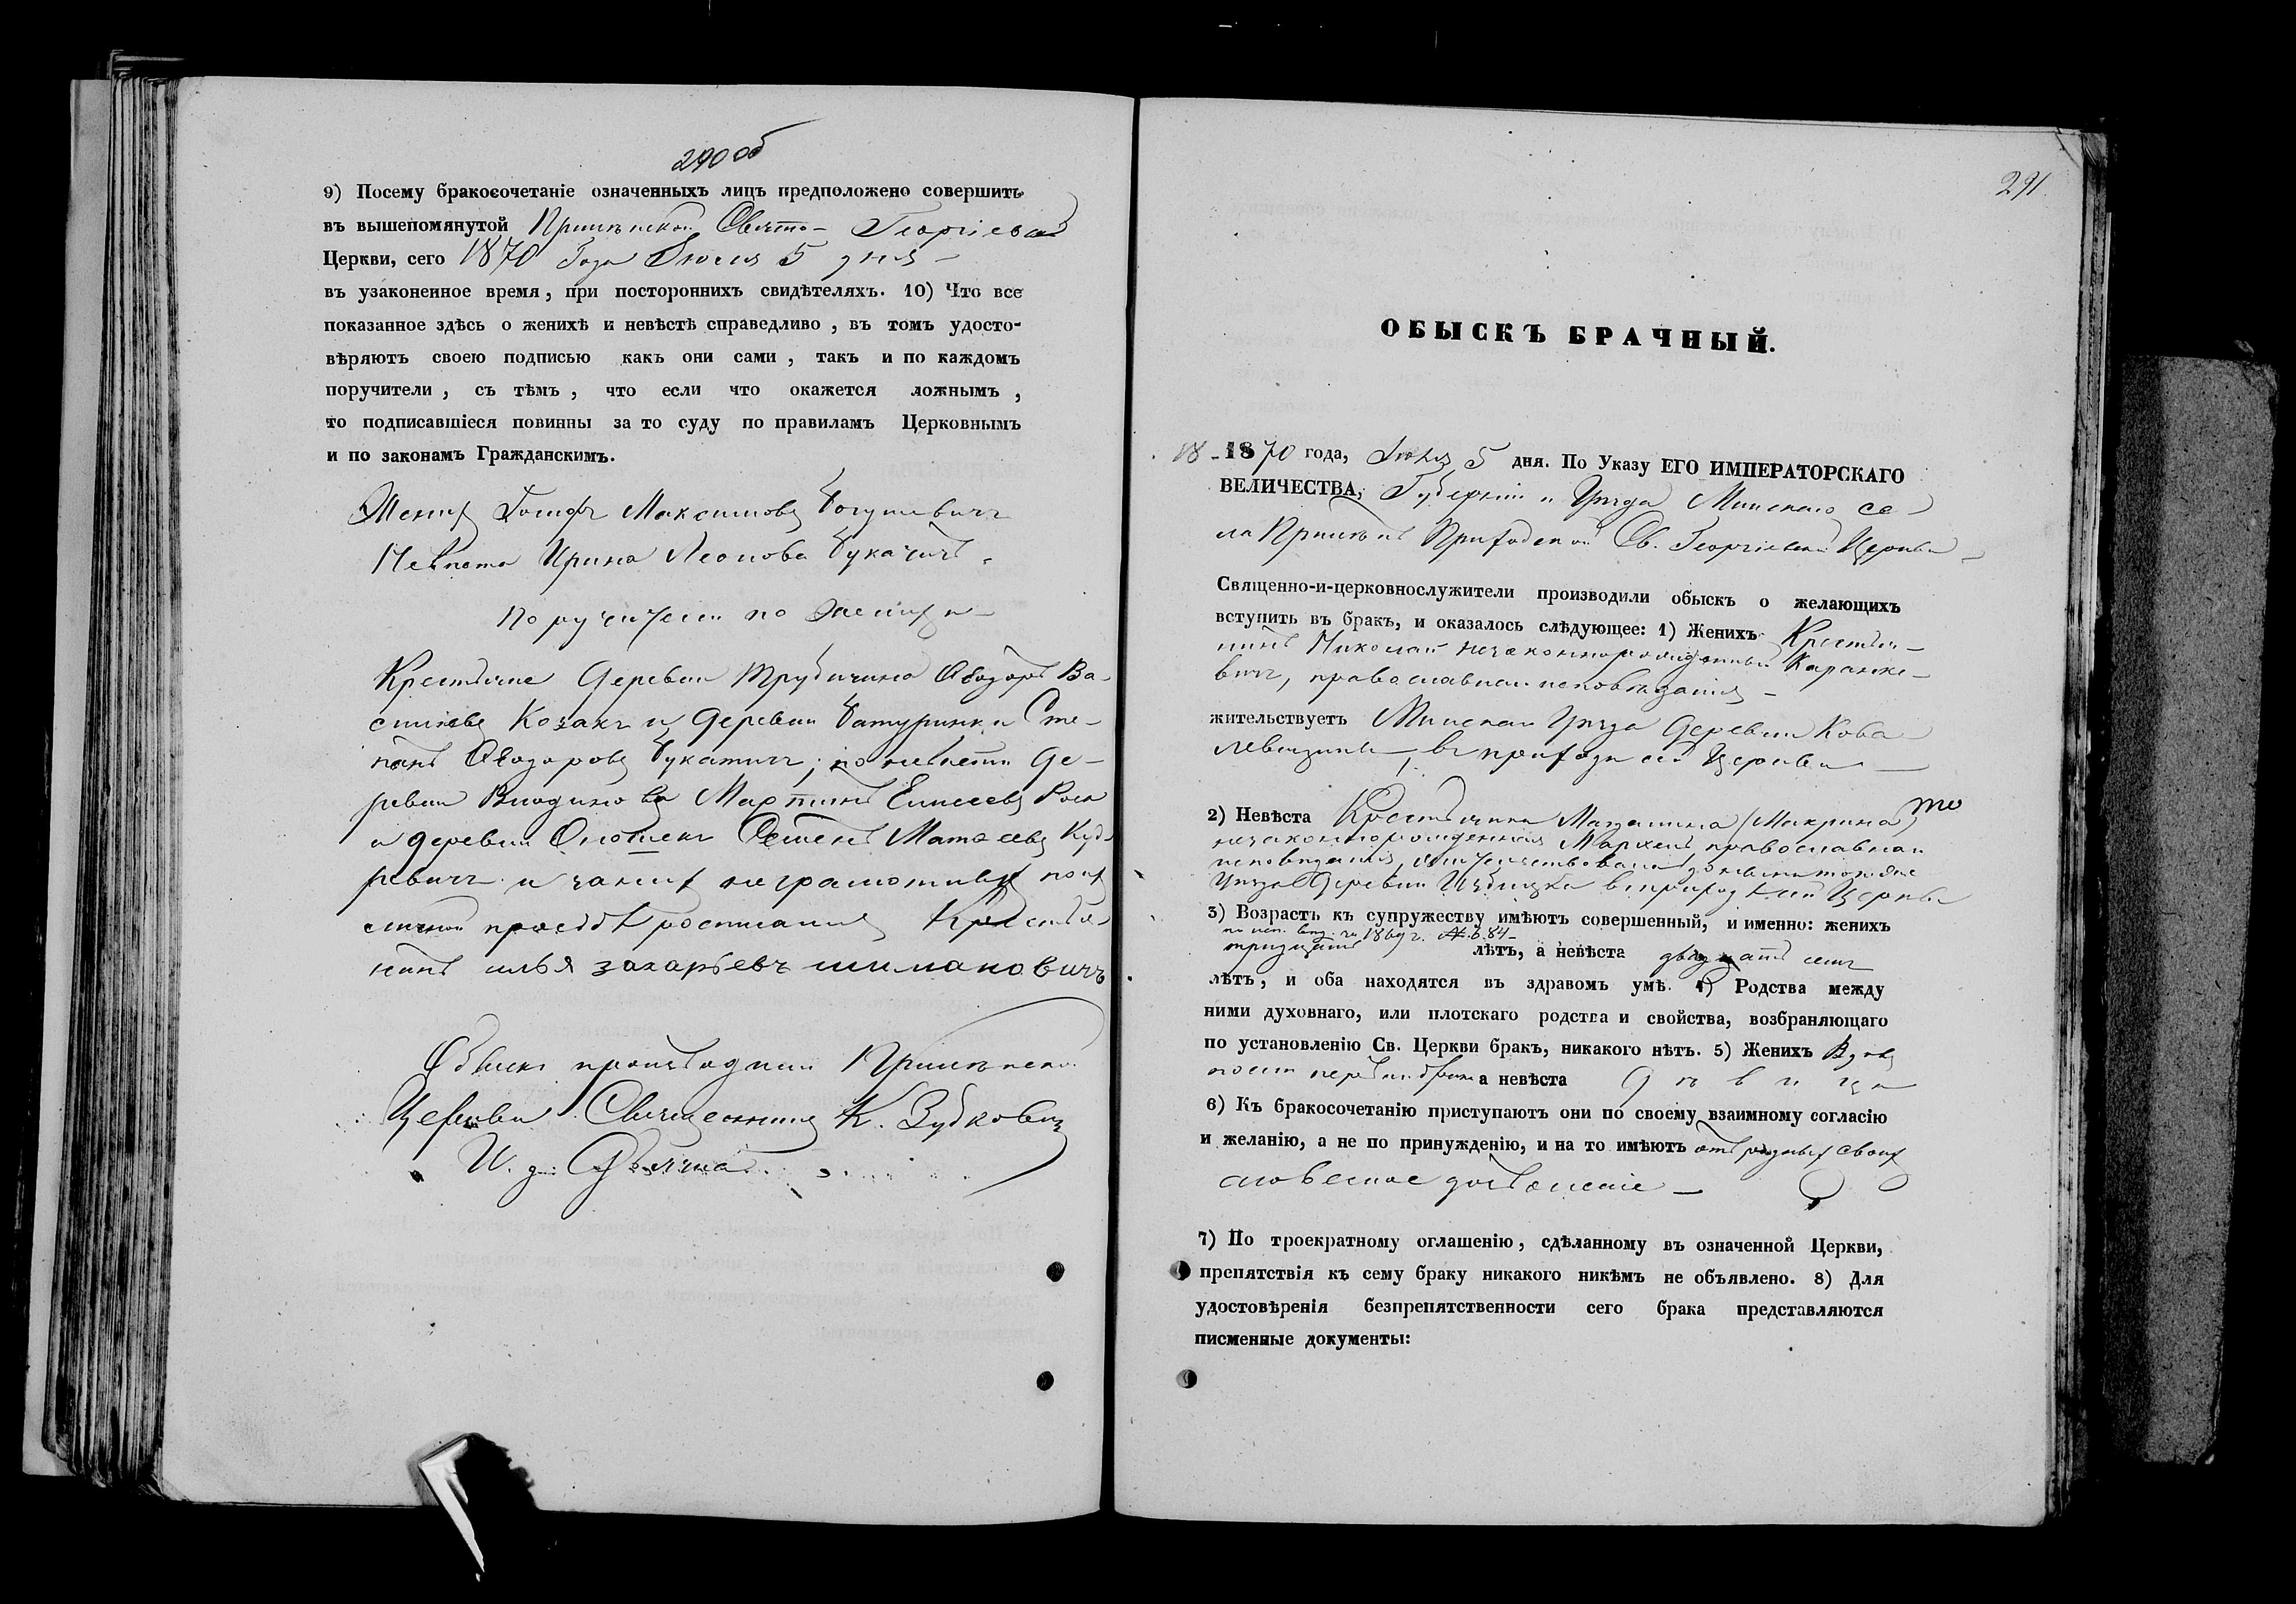 290 об
9) Посему бракосочетаніе означенныхъ лицъ предположено совершить
въ вышепомянутой Прилѣпской Свято- Георгіевской
Церкви, сего 1870 Года Іюля 5 дня
въ узаконенное время, при постороннихъ свидѣтеляхъ. 10) Что все
показанное здѣсь о женихѣ и невѣстѣ справедливо, въ томъ удосто-
вѣряютъ своею подписью какъ они сами, такъ и по каждомъ
поручители, съ тѣмъ, что если что окажется ложнымъ,
то подписавшіеся повинны за то суду по правиламъ Церковнымъ
и по законамъ Гражданскимъ.
Женихъ Іосифъ Максимовъ Богушевичъ
Невѣста Ирина Леонова Букатичъ
Поручители по Женихѣ
Крестьяне Деревни Трубичина Ѳеодоръ Ва-
сильевъ Козакъ и деревни Батуринки Сте-
панъ Ѳеодоровъ Букатичъ; по невѣстѣ де-
ревни Мартинъ Елисеевъ
и деревни Семенъ Матѳеевъ Куд-
ревичъ и за нихъ неграмотныхъ по ихъ
личной прозьбѣ росписался Крестья-
нинъ илья захарьевъ шиманович
Обыскъ производили Прилѣпской
Церкви Священникъ К. Зубковичъ
И. д.
291
18 - 1870 года, Іюля 5 дня. По Указу ЕГО ИМПЕРАТОРСКАГО
ВЕЛИЧЕСТВА, Губерніи и Уѣзда Минскаго се
ла Прилѣпъ Приходской Св. Георгіевской Церкви
ОБЫСКЪ БРАЧНЫЙ.
Священно-и-церковнослужители производили обыскъ о желающихъ
вступить въ бракъ, и оказалось слѣдующее: 1) Женихъ Крестья-
нинъ Николай незаконнорожденный Каранке-
вичъ, православнаго исповѣданія
жительствуетъ Минскаго Уѣзда Деревни Кова
левщины, въ приходѣ сей Церкви
2) Невѣста Крестьянка (Макрина)
незаконнорожденная православнаго
исповѣданія, жительствовала донынѣ того же
Уѣзда Деревни въ приходѣ сей Церкви
3) Возрастъ къ супружеству имѣютъ совершенный, и именно: женихъ
по исп. вѣд. за 1869 г. № 84
тридцать лѣтъ, а невѣста двадцать семь
лѣтъ, и оба находятся въ здравомъ умѣ. 4) Родства между
ними духовнаго, или плотскаго родства и свойства, возбраняющаго
по установленію Св. Церкви бракъ, никакого нѣтъ. 5) Женихъ Вдовъ
послѣ перваго брака а невѣста дѣвица
6) Къ бракосочетанію приступаютъ они по своему взаимному согласію
и желанію, а не по принужденію, и на то имѣютъ отъ родныхъ своихъ
словесное дозволеніе
7) По троекратному оглашенію, сдѣланному въ означенной Церкви,
препятствія къ сему браку никакого никѣмъ не объявлено. 8) Для
удостовѣренія безпрепятственности сего брака представляются
писменные документы: